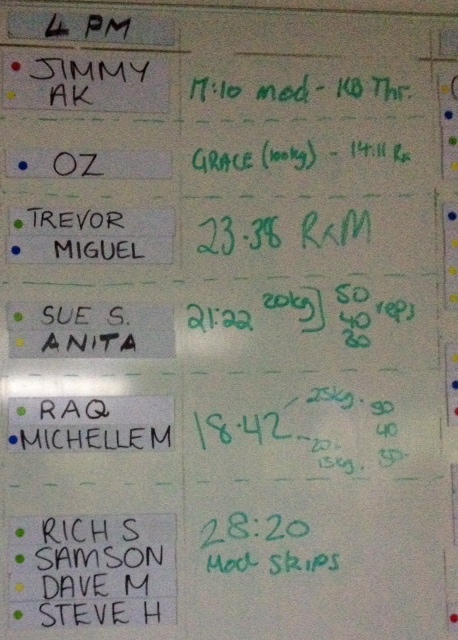 4 PM
JIMMY
AK
17:10 mod - KB Thr.
OZ
GRACE (100kg) - 14:11 Rx
TREVOR
MIGUEL
23.38 RxM
SUE S.
ANITA
21:22 20kg] 50
40 reps
30
RAQ
MICHELLE M
18.42
25kg.
20.
15kg.
40
28:20
Mod Skips
RICH S
SAMSON
DAVE M
STEVE H